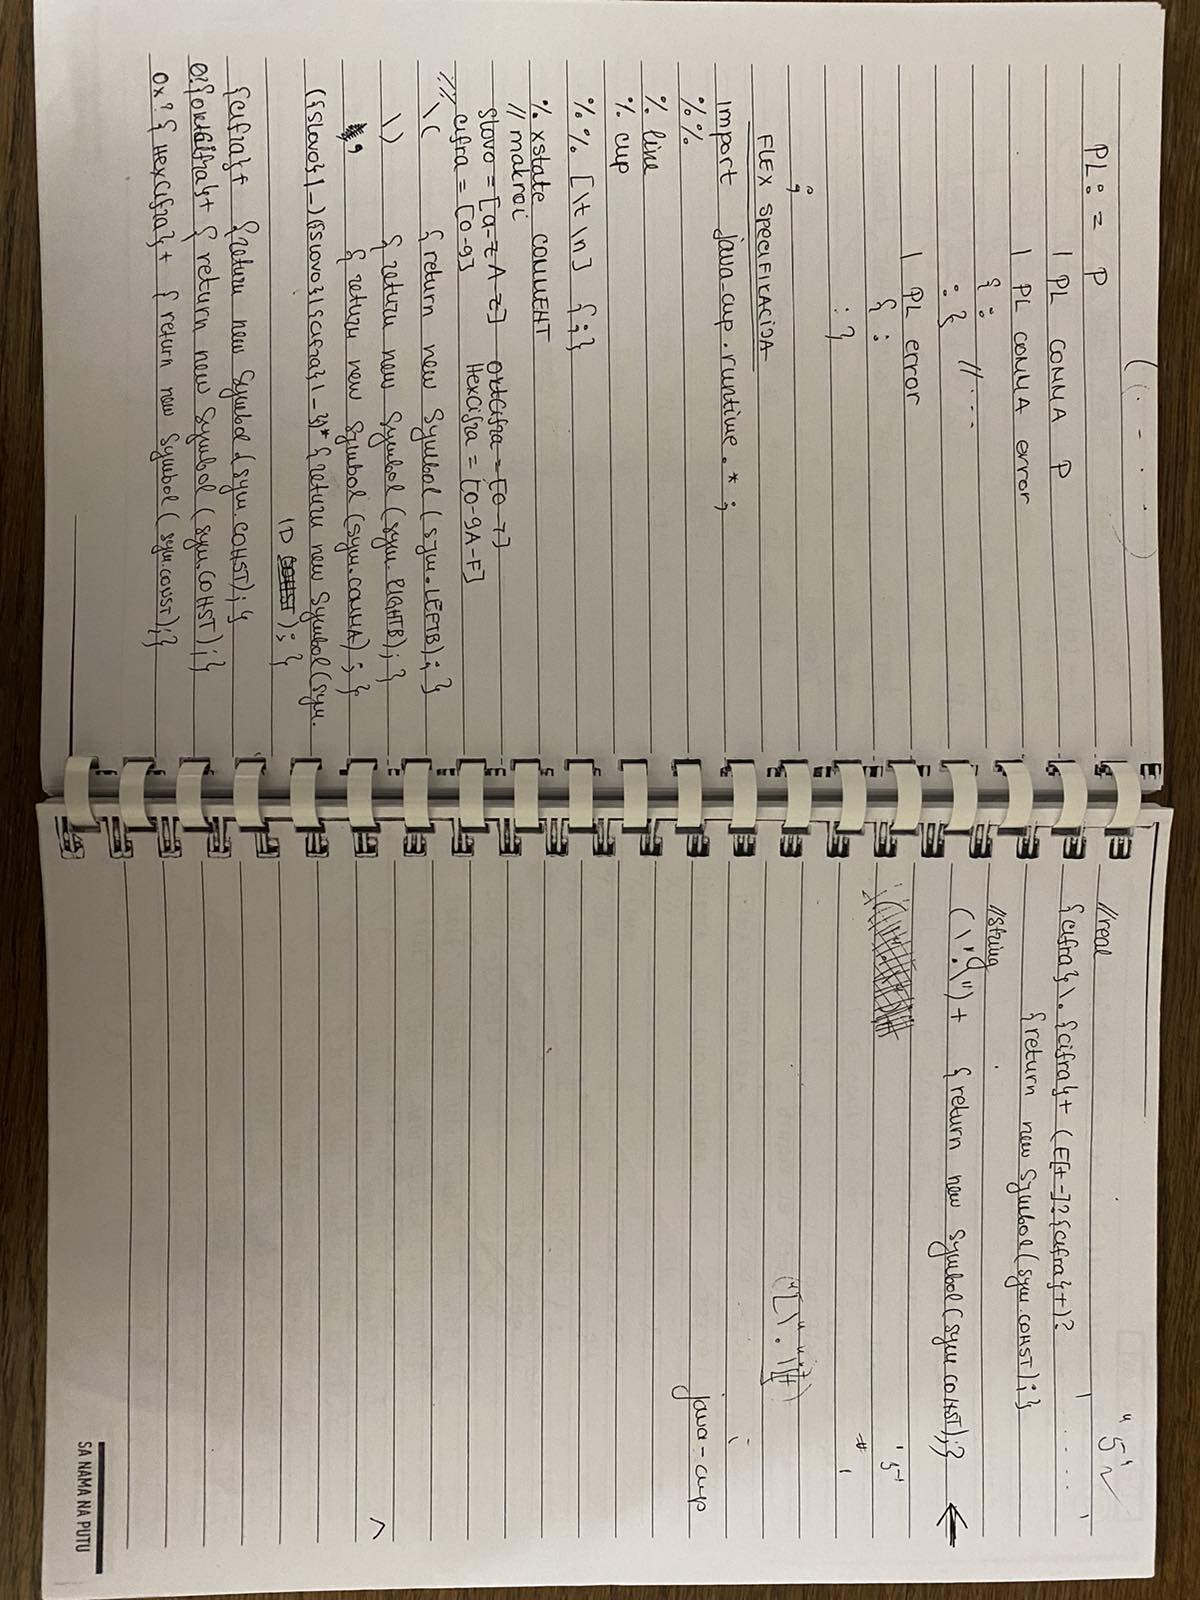 (. - . .)
PL : = P
| PL COMMA P
| PL COMMA error
{: // ....
:}
| PL error
{:
:}
;
FLEX SPECIFIKACIJA
import java_cup.runtime.*;
%%
% line
% cup
%% [\t \n] {;}
% xstate COMMENT
// makroi
slovo = [a-z A-Z] oktCifra = [0-7]
cifra = [0-9] HexCifra = [0-9A-F]
\( {return new Symbol (sym.LEFTB);}
\) {return new Symbol (sym.RIGHTB);}
, {return new Symbol (sym.COMMA);}
({slovo}|_)({slovo}|{cifra}|_)* {return new Symbol(sym.
ID );}
{cifra}+ {return new Symbol (sym.CONST);}
0?{oktCifra}+ {return new Symbol (sym.CONST);}
0x?{HexCifra}+ {return new Symbol (sym.CONST);}
//real
{cifra}\.{cifra}+ (E[+-]?{cifra}+)?
{return new Symbol(sym.CONST);}
//string
(\".\")+ {return new Symbol (sym.CONST);}
java-cup
SA NAMA NA PUTU